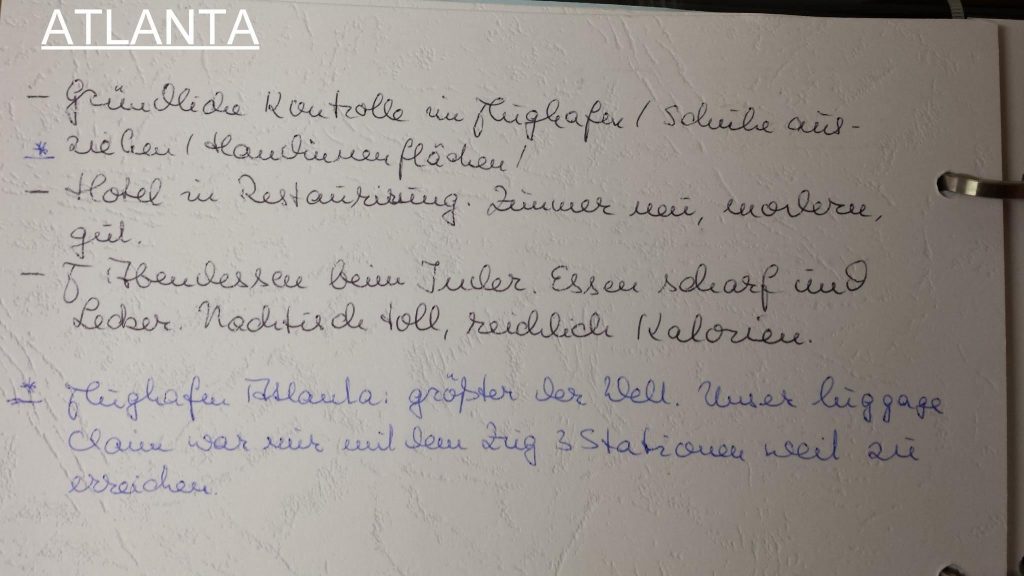 ATLANTA
- Gründliche Kontrolle im Flughafen / Schuhe aus-
* ziehen / Handinnenflächen /
- Hotel in Restaurierung. Zimmer neu, modern,
gut.
- Abendessen beim Inder. Essen scharf und
Lecker. Nachtisch toll, reichlich Kalorien.
* Flughafen Atlanta: größter der Welt. Unser luggage
claim war nur mit dem Zug 3 Stationen weit zu
erreichen.